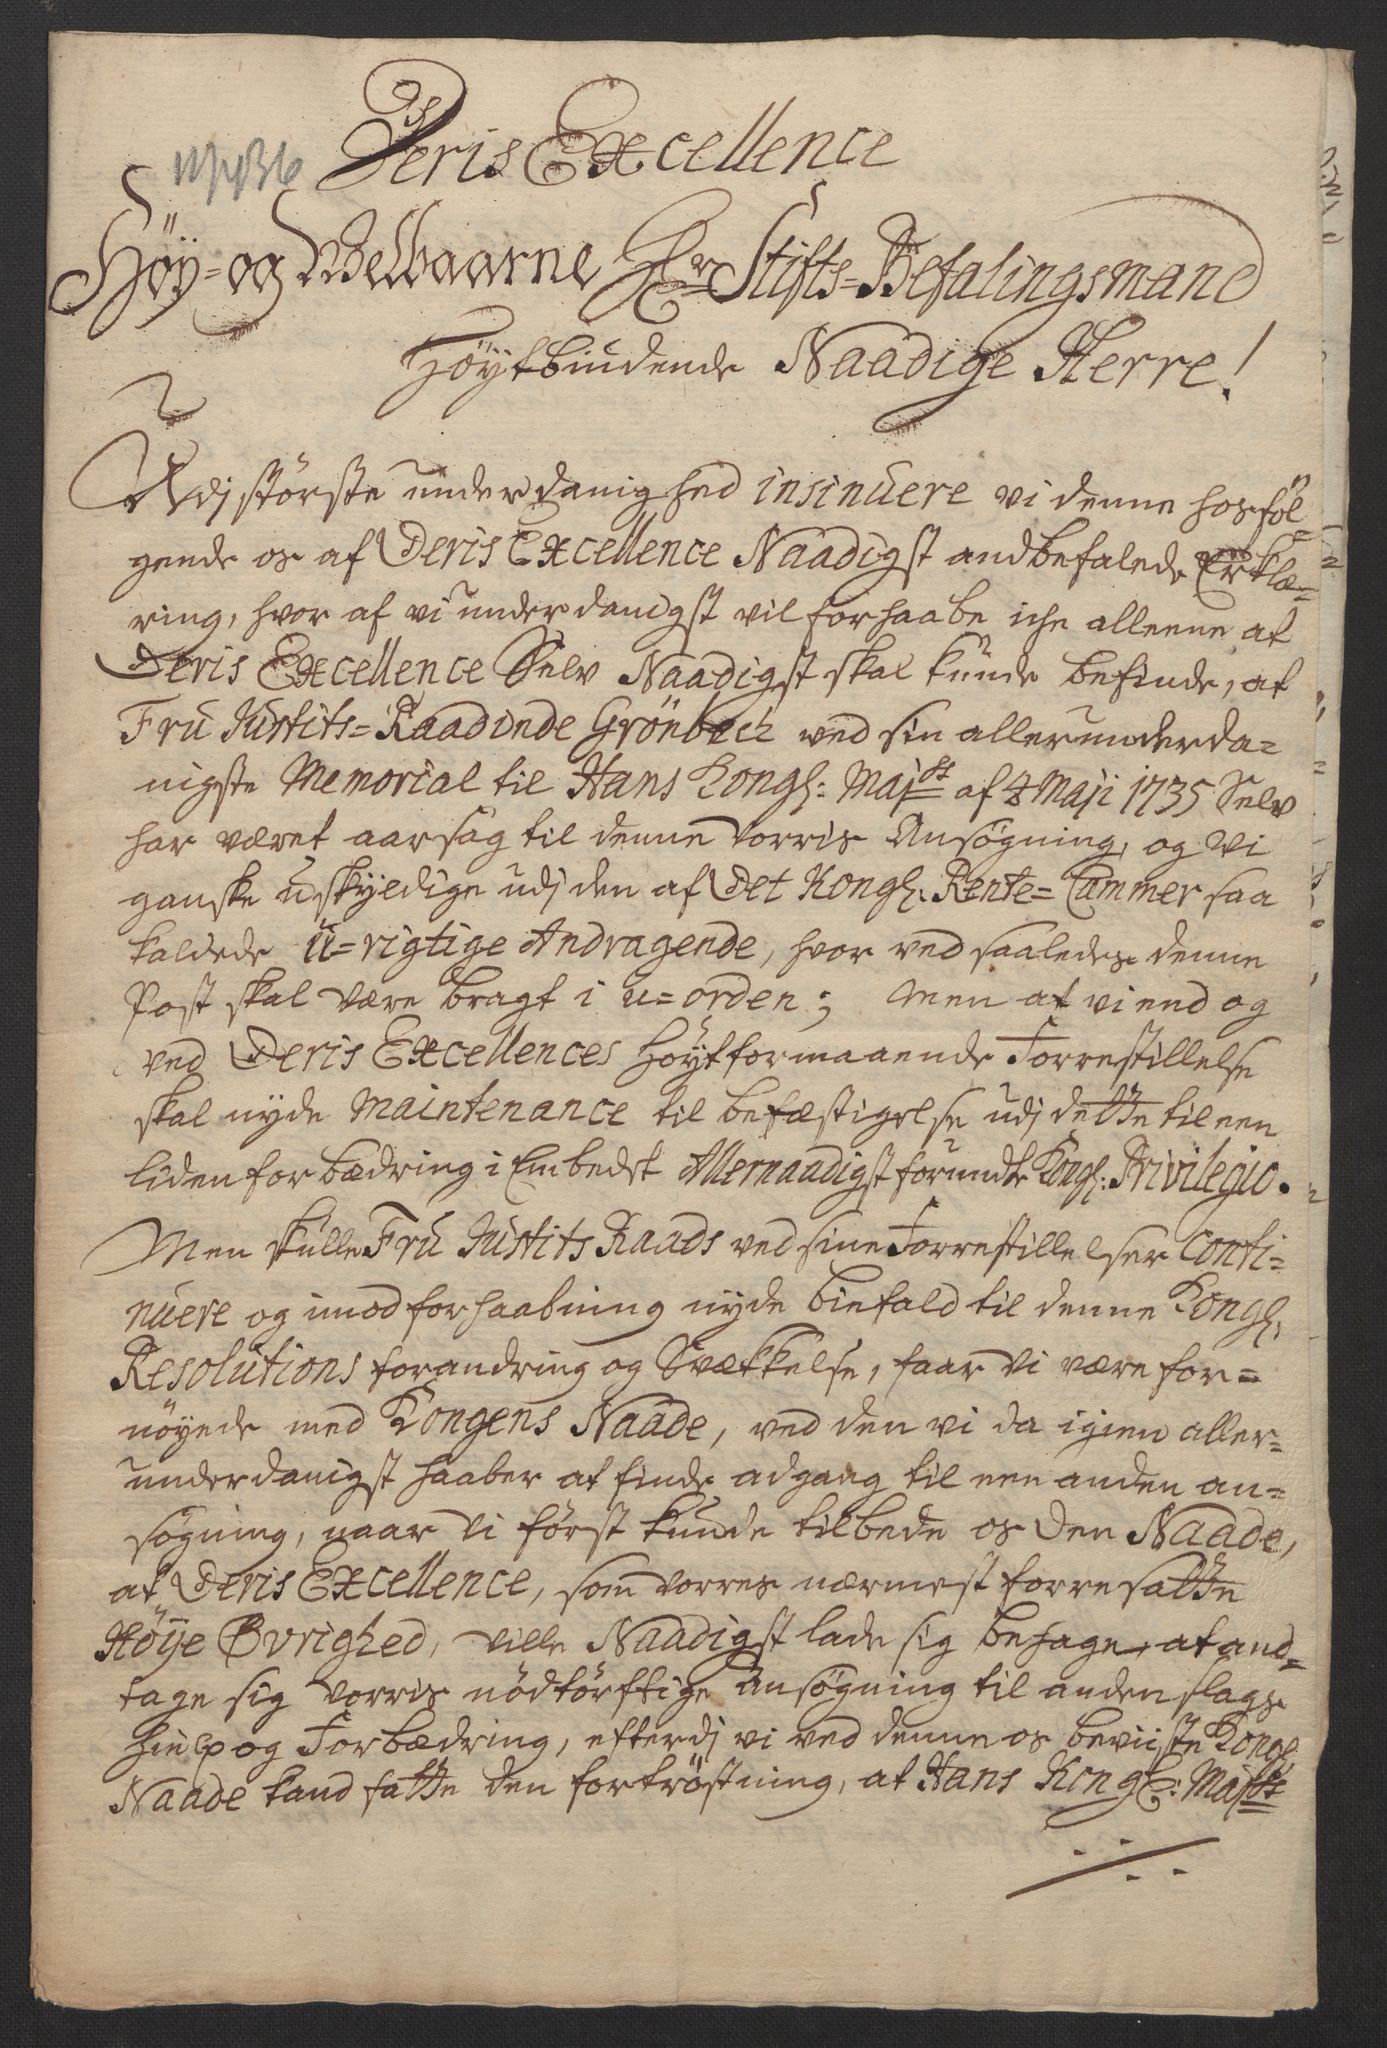 Deris Excellence
Höy- og Welbaarne Hr Stifts-Befalingsmand
Höytbiudende Naadige Herre!
Udj störste underdanighed insinuere vi denne hosföl-
gende os af Deris Excellence Naadigst andbefalede Erklæ-
ring, hvor af vi underdanigst vil forhaabe iche alleene at
Deris Excellence Selv Naadigst skal kunde befinde, at
Fru Justits-Raadinde Grönbech ved sin allerunderda-
nigste Memorial til Hans Kongl: Majts af 4 Maji 1735 Selv
har været aarsag til denne vorris Ansøgning, og vi
ganske uskyldige udj den af Det Kongl. Rente-Cammer saa
kaldede U-rigtige Andragende, hvor ved saaledes denne
Post skal være bragt i u-orden; Men at vi end og
ved Deris Excellences höytformaaende Forrestillelse
skal nyde Maintenance til befæstigelse udj dette til een
liden forbædring i Embedet Allernaadigst forundte Kongl: Privilegio.
Men skulle Fru Justits Raads ved sine Forrestillelser Conti-
nuere og imod forhaabning nyde biefald til denne Kongl.
Resolutions forandring og Svækkelse, faar vi være for-
nöyede med Kongens Naade, ved den vi da igien aller-
underdanigst haaber at finde adgang til een anden an-
søgning, naar vi først kunde tilbede os den Naade,
at Deris Excellence, som vorres nærmest forresatte
Höye Øvrighed, ville Naadigst lade sig behage, at and-
tage sig vorris nödtörftige Ansøgning til anden slags
hielp og Forbædring, efterdj vi ved denne os beviiste Kongl.
Naade kand fatte den fortröstning, at Hans Kongl: Majts